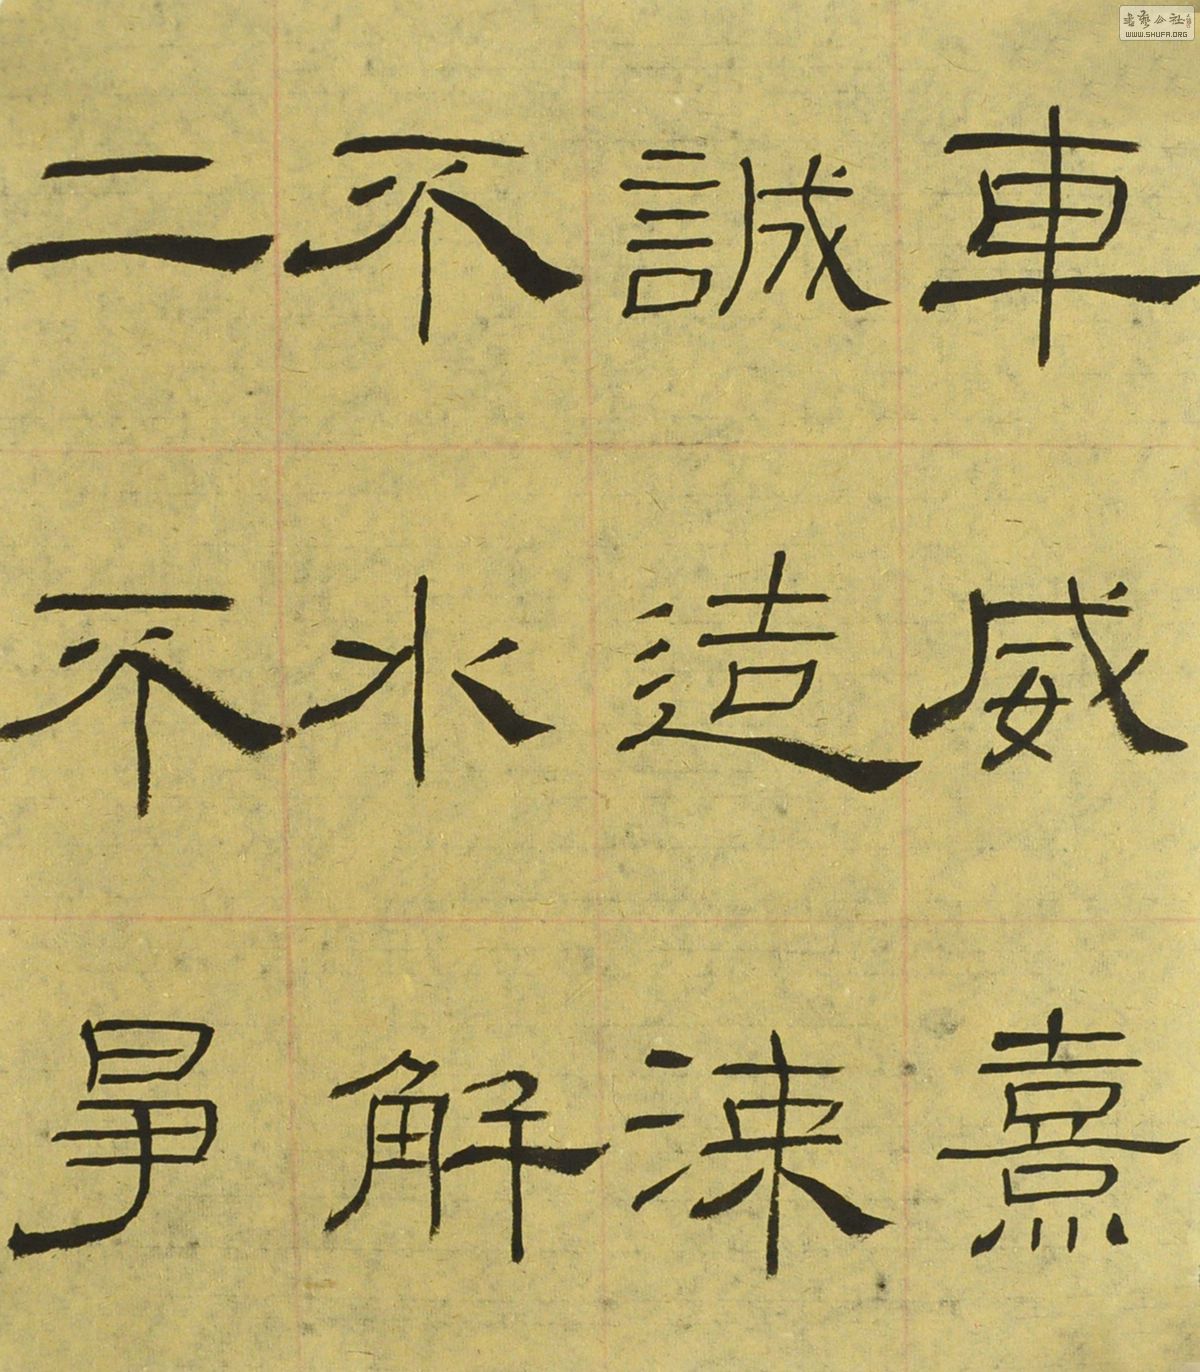 車威熹
誠造涑
不水解
二不爭
書藝公社
WWW.SHUFA.ORG